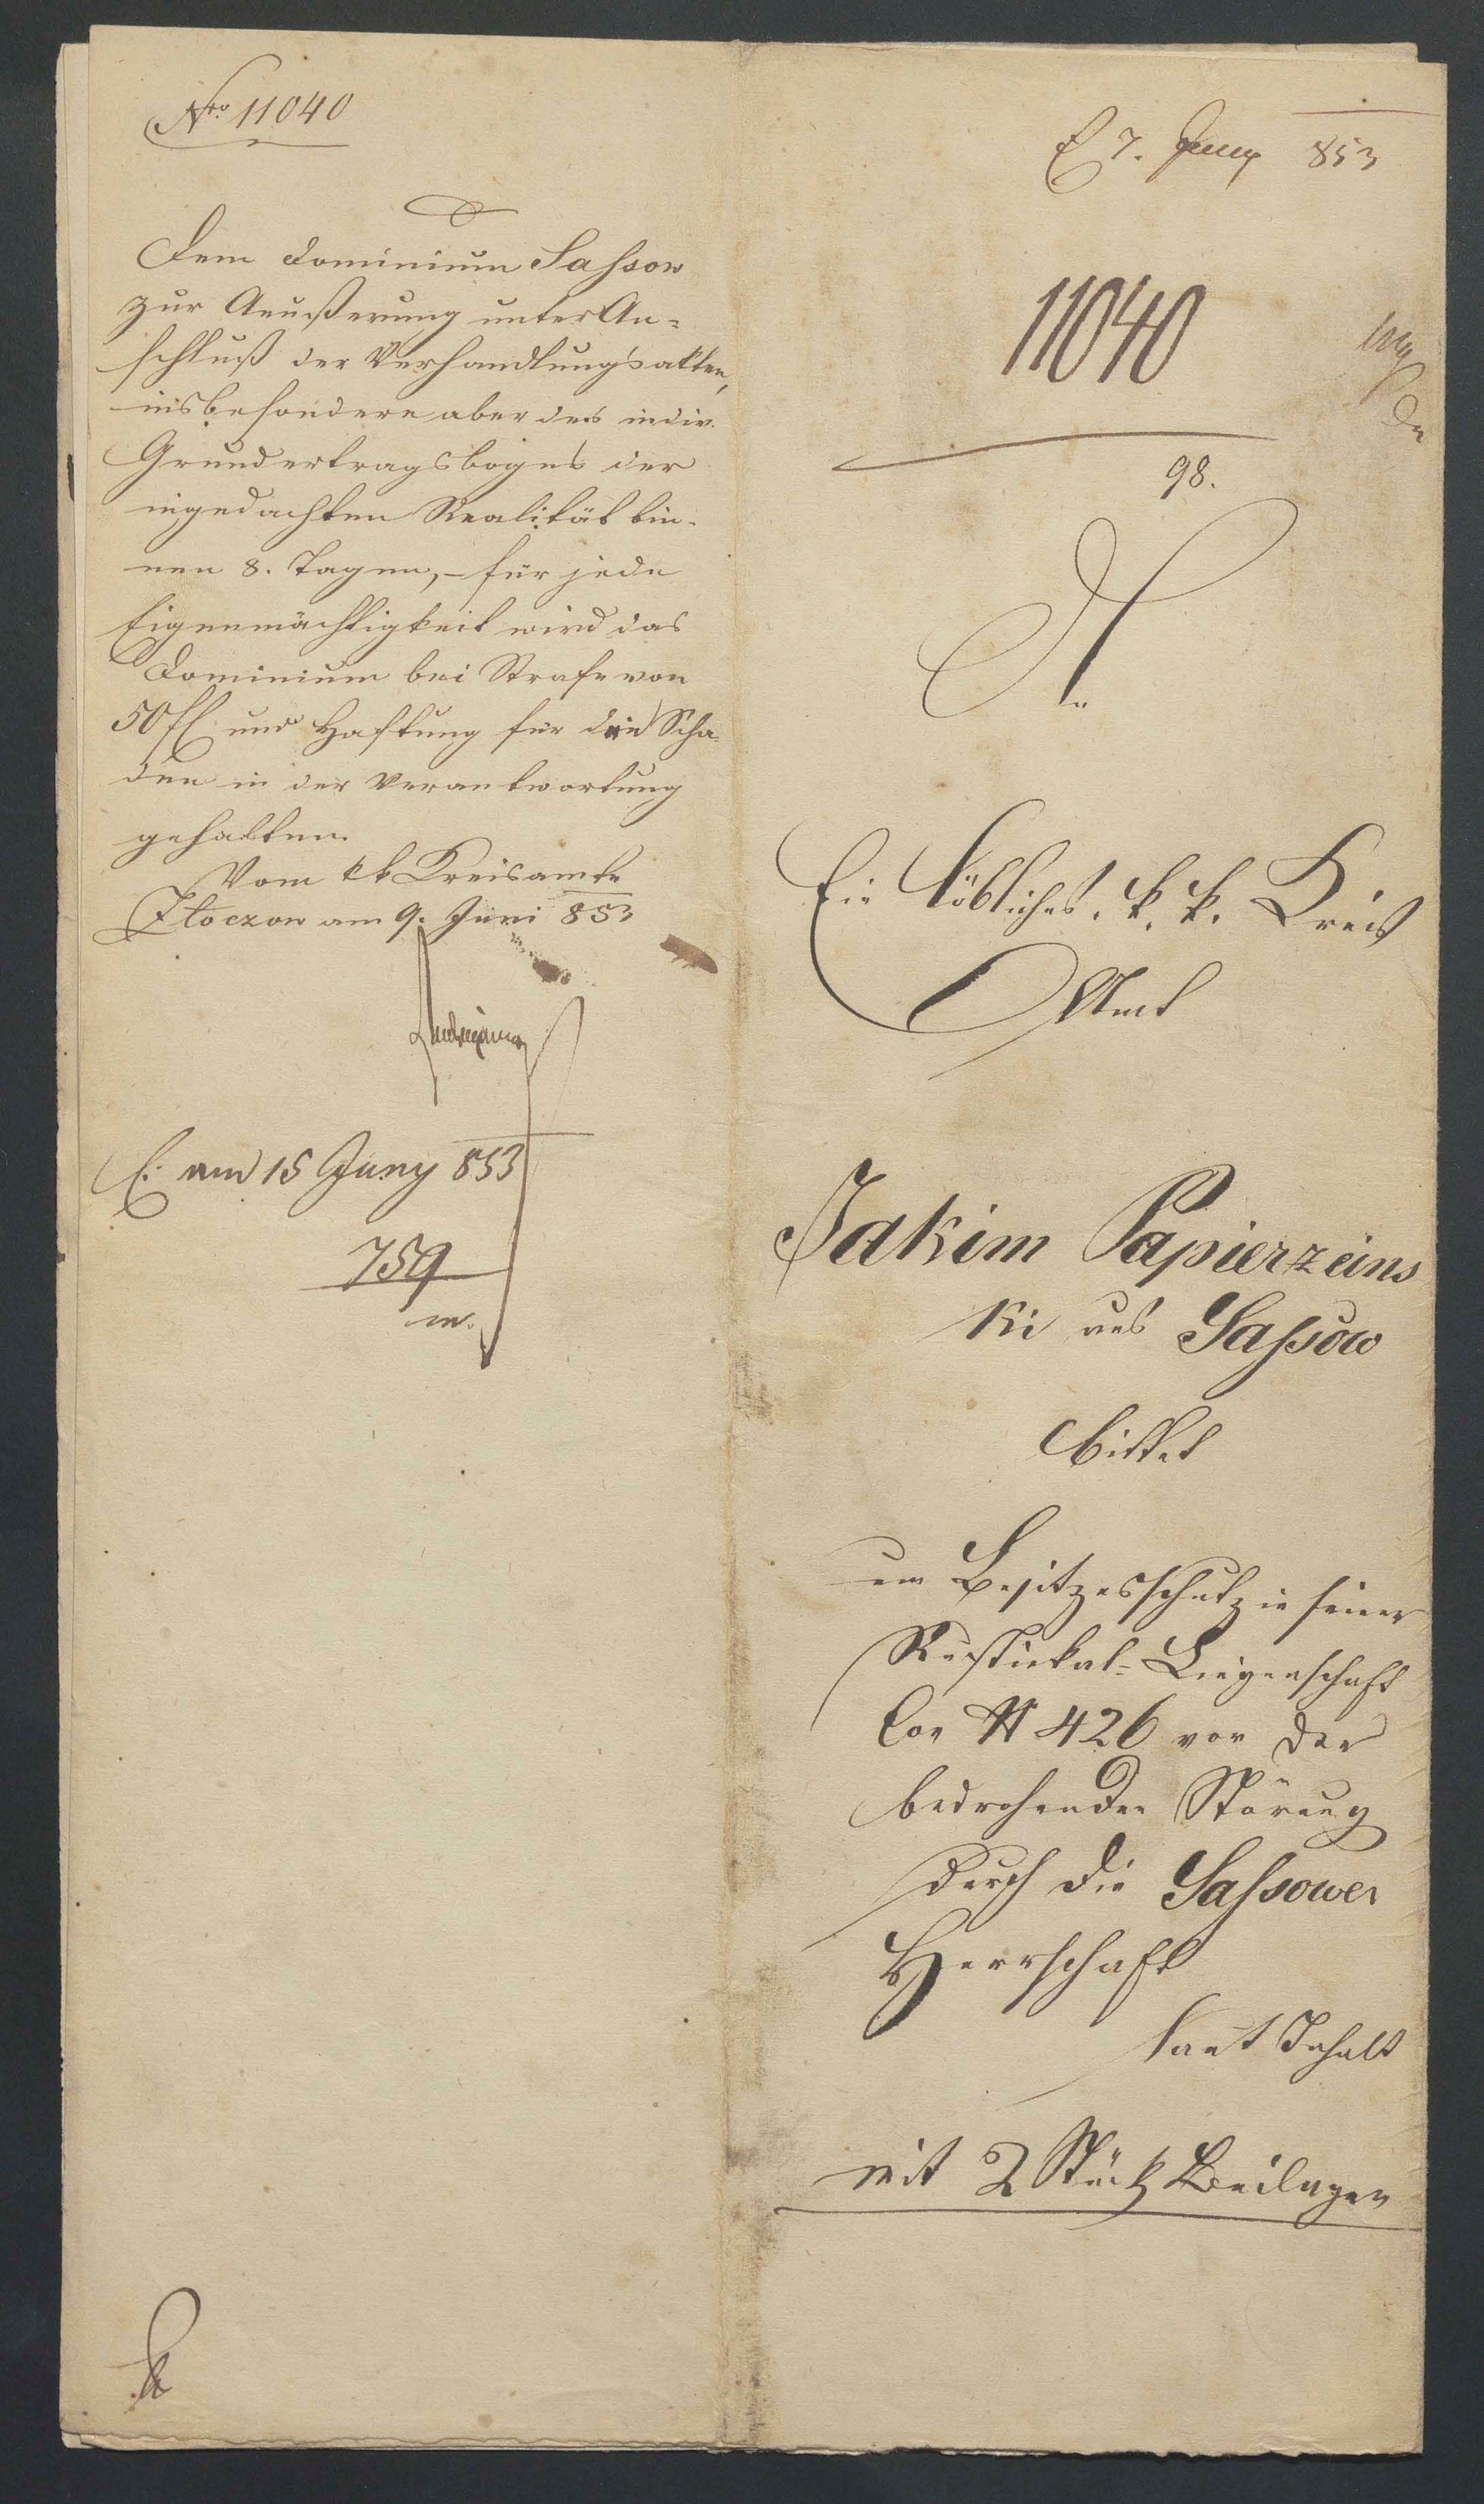 Nro 11040
Dem Dominium Sassow
zur Aeußerung unter An-
schluß der Verhandlungsakten,
insbesondere aber des indiv.
Grundertragsbogens der
ingedachten Realität bin-
nen 8. Tagen, – für jede
Eigenmächtigkeit wird das
Dominium bei Strafe von
50 fl und Haftung für den Scha-
den in der Verantwortung
gehalten.
Vom kk Kreisamte
Złoczow am 9. Juni 853
E: am 15 Juny 853
759
E 7. Juny 853
11040
98.
Ein Löbliches k. k. Kreis
Amt
Jakim Papierzeins
ki aus Sassow
bittet
um Besitzesschutz in seiner
Rustikal-Liegenschaft
Con N 426 vor der
bedrohenden Störung
durch die Sassower
Herrschaft
laut Inhalt
mit 2 Stück Beilagen